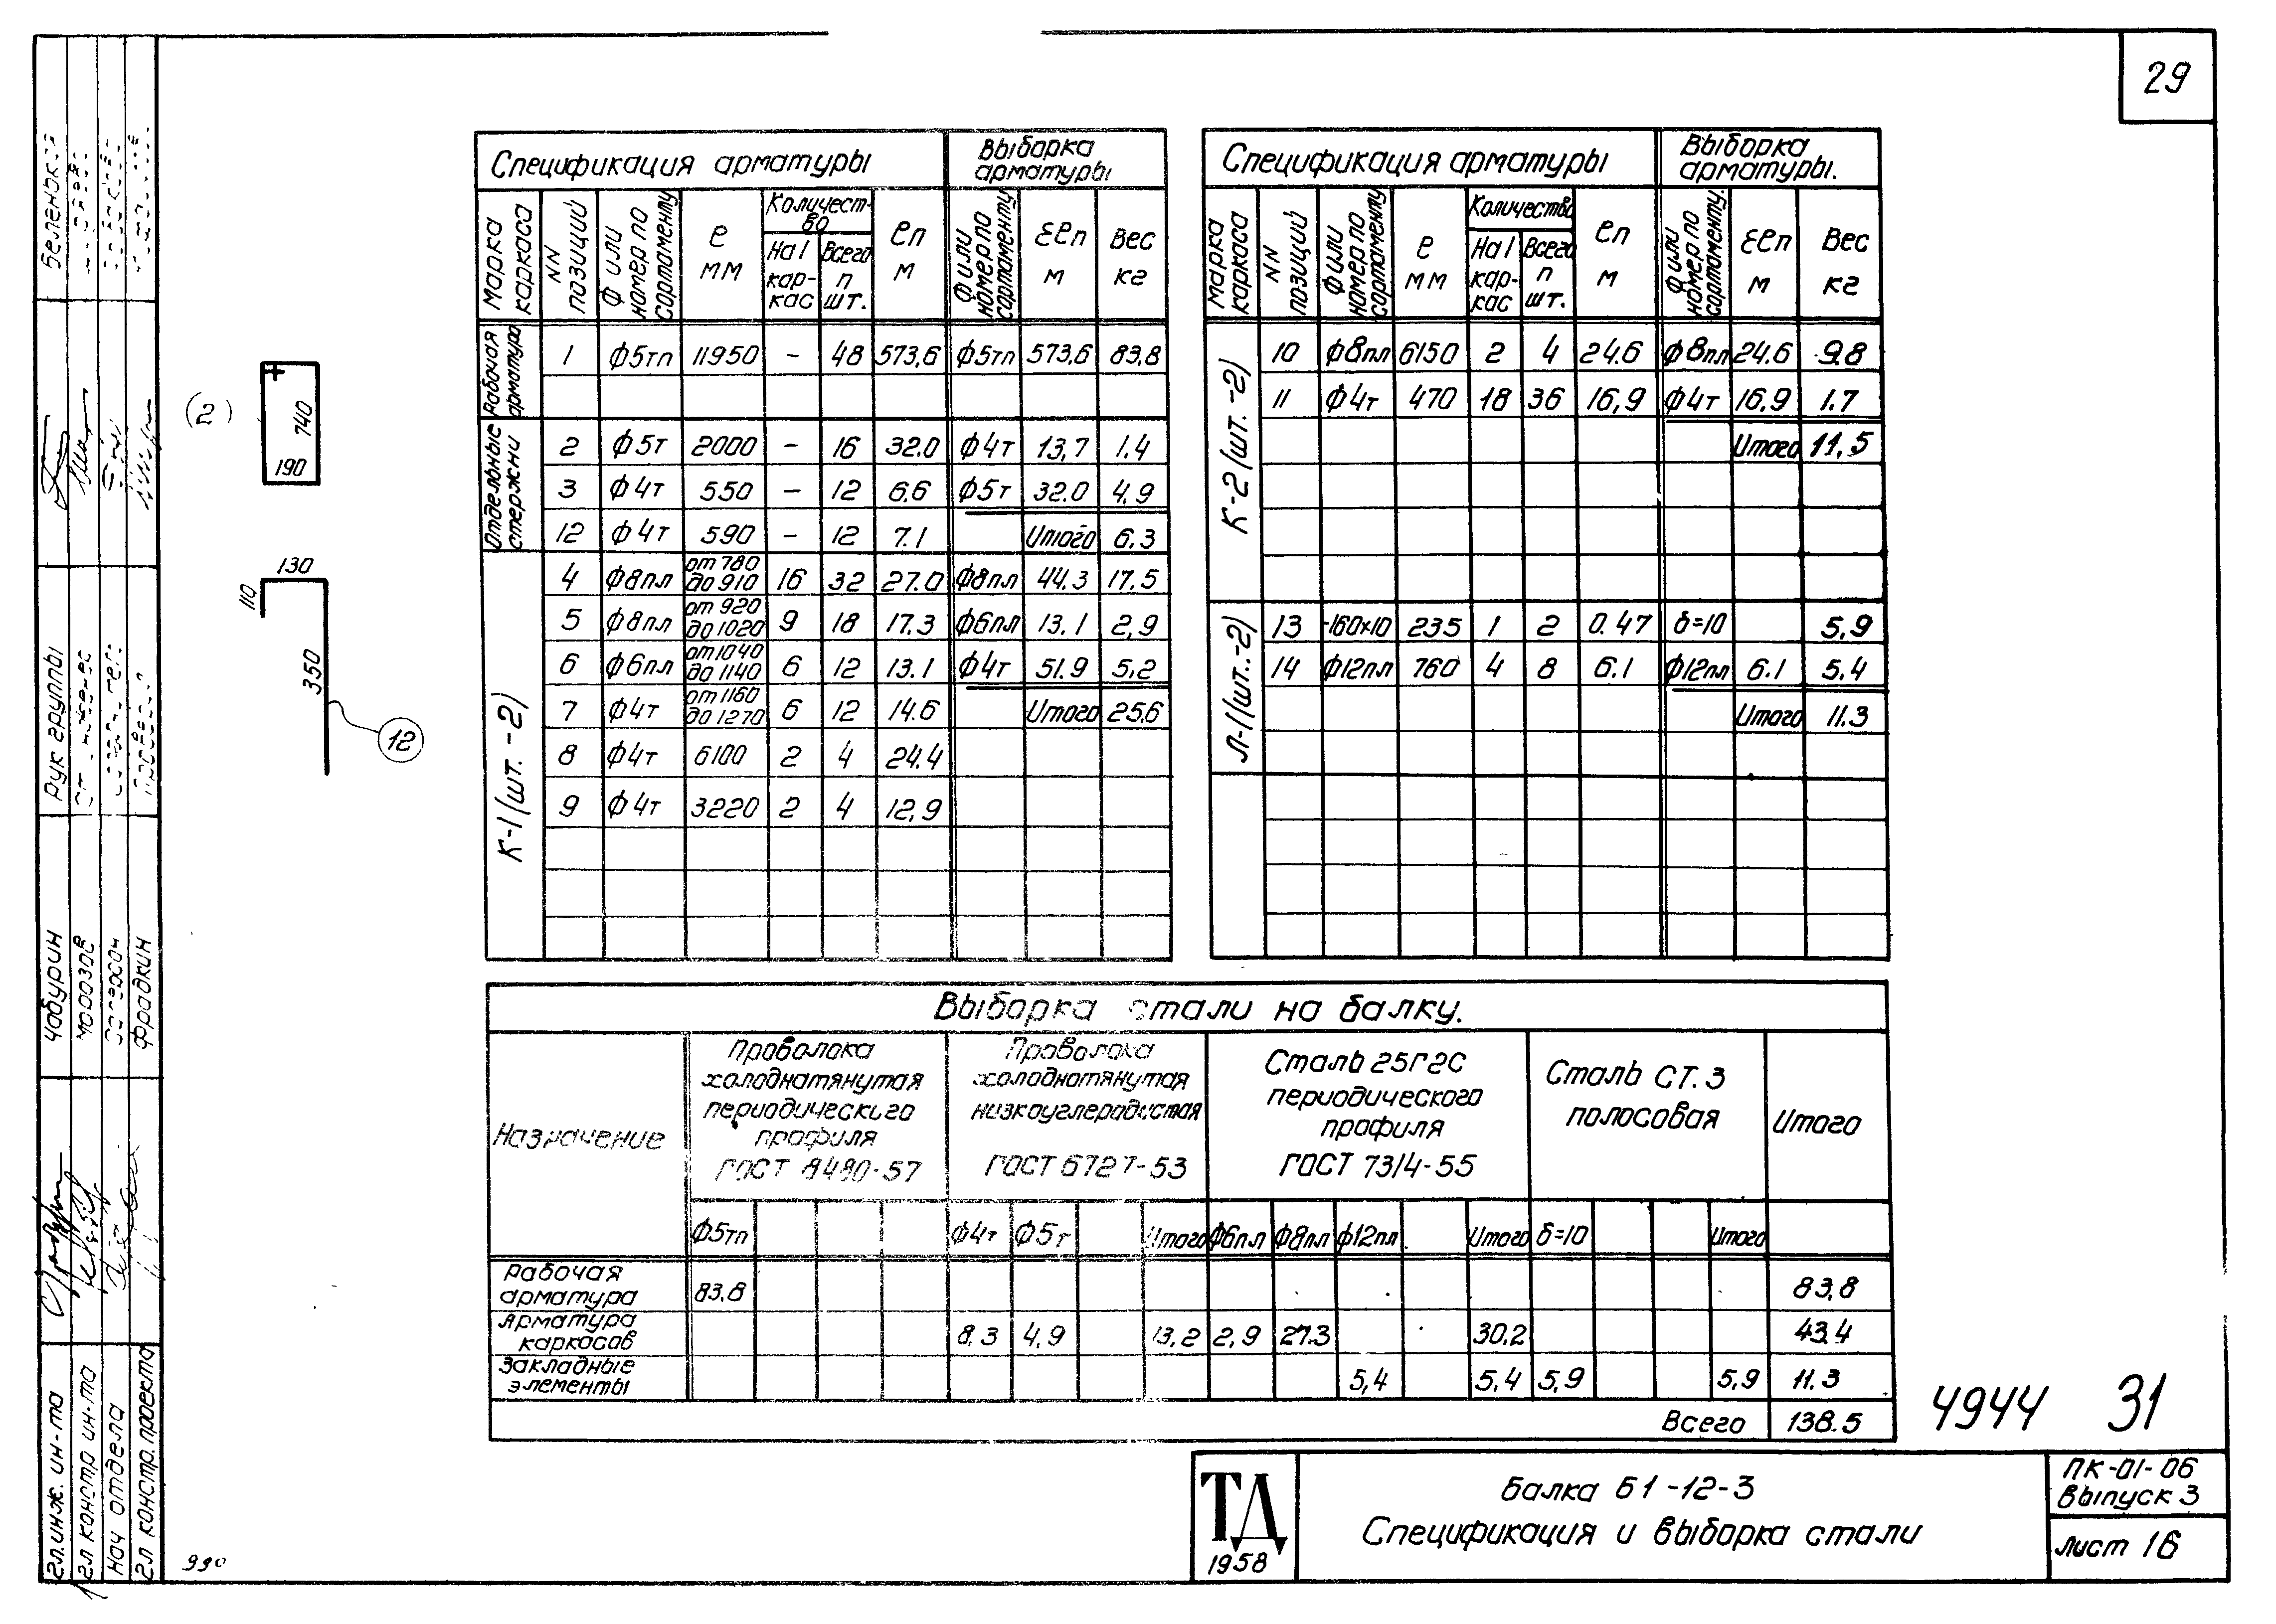 29
Спецификация арматуры
Выборка арматуры
Марка каркаса
NN позиций
Ф или номер по сортаменту
ℓ мм
Количест-во
На 1 кар-кас
Всего п шт.
ℓп м
Ф или номер по сортаменту
Σℓп м
Вес кг
Рабочая арматура
1 Ф5тп 11950 – 48 573,6 Ф5тп 573,6 83,8
Отдельные стержни
2 Ф5т 2000 – 16 32.0 Ф4т 13,7 1.4
3 Ф4т 550 – 12 6.6 Ф5т 32.0 4,9
12 Ф4т 590 – 12 7.1 Итого 6.3
К-1 (шт. -2)
4 Ф8пл от 780 до 910 16 32 27.0 Ф8пл 44.3 17.5
5 Ф8пл от 920 до 1020 9 18 17.3 Ф6пл 13.1 2,9
6 Ф6пл от 1040 до 1140 6 12 13.1 Ф4т 51.9 5,2
7 Ф4т от 1160 до 1270 6 12 14.6 Итого 25.6
8 Ф4т 6100 2 4 24.4
9 Ф4т 3220 2 4 12,9
Спецификация арматуры
Выборка арматуры.
Марка каркаса
NN позиций
Ф или номер по сортаменту
ℓ мм
Количество
На 1 кар-кас
Всего п шт.
ℓп м
Ф или номер по сортаменту.
Σℓп м
Вес кг
К-2 (шт. -2)
10 Ф8пл 6150 2 4 24.6 Ф8пл 24.6 9.8
11 Ф4т 470 18 36 16,9 Ф4т 16.9 1.7
Итого 11,5
Л-1 (шт. -2)
13 -160×10 235 1 2 0.47 δ=10 5,9
14 Ф12пл 760 4 8 6.1 Ф12пл 6.1 5,4
Итого 11.3
(2)
740
190
130
110
350
12
Выборка стали на балку.
Назначение
Проволока
холоднатянутая
периодического
профиля
ГОСТ 8480-57
Проволока
холоднотянутая
низкоуглеродистая
ГОСТ 6727-53
Сталь 25Г2С
периодического
профиля
ГОСТ 7314-55
Сталь СТ.3
полосовая
Итого
Ф5тп Ф4т Ф5т Итого Ф6пл Ф8пл Ф12пл Итого δ=10 Итого
Рабочая арматура 83.8 83,8
Арматура каркасов 8,3 4,9 13,2 2,9 27.3 30.2 43.4
Закладные элементы 5,4 5,4 5,9 5,9 11.3
Всего 138.5
4944 31
ТД
1958
Балка Б1-12-3
Спецификация и выборка стали
ПК-01-06
Выпуск 3
Лист 16
Рук группы
Фрадкин
Морозов
Чабурин
Гл. инж. ин-та
Гл констр ин-та
Нач отдела
Гл констр. проекта
990